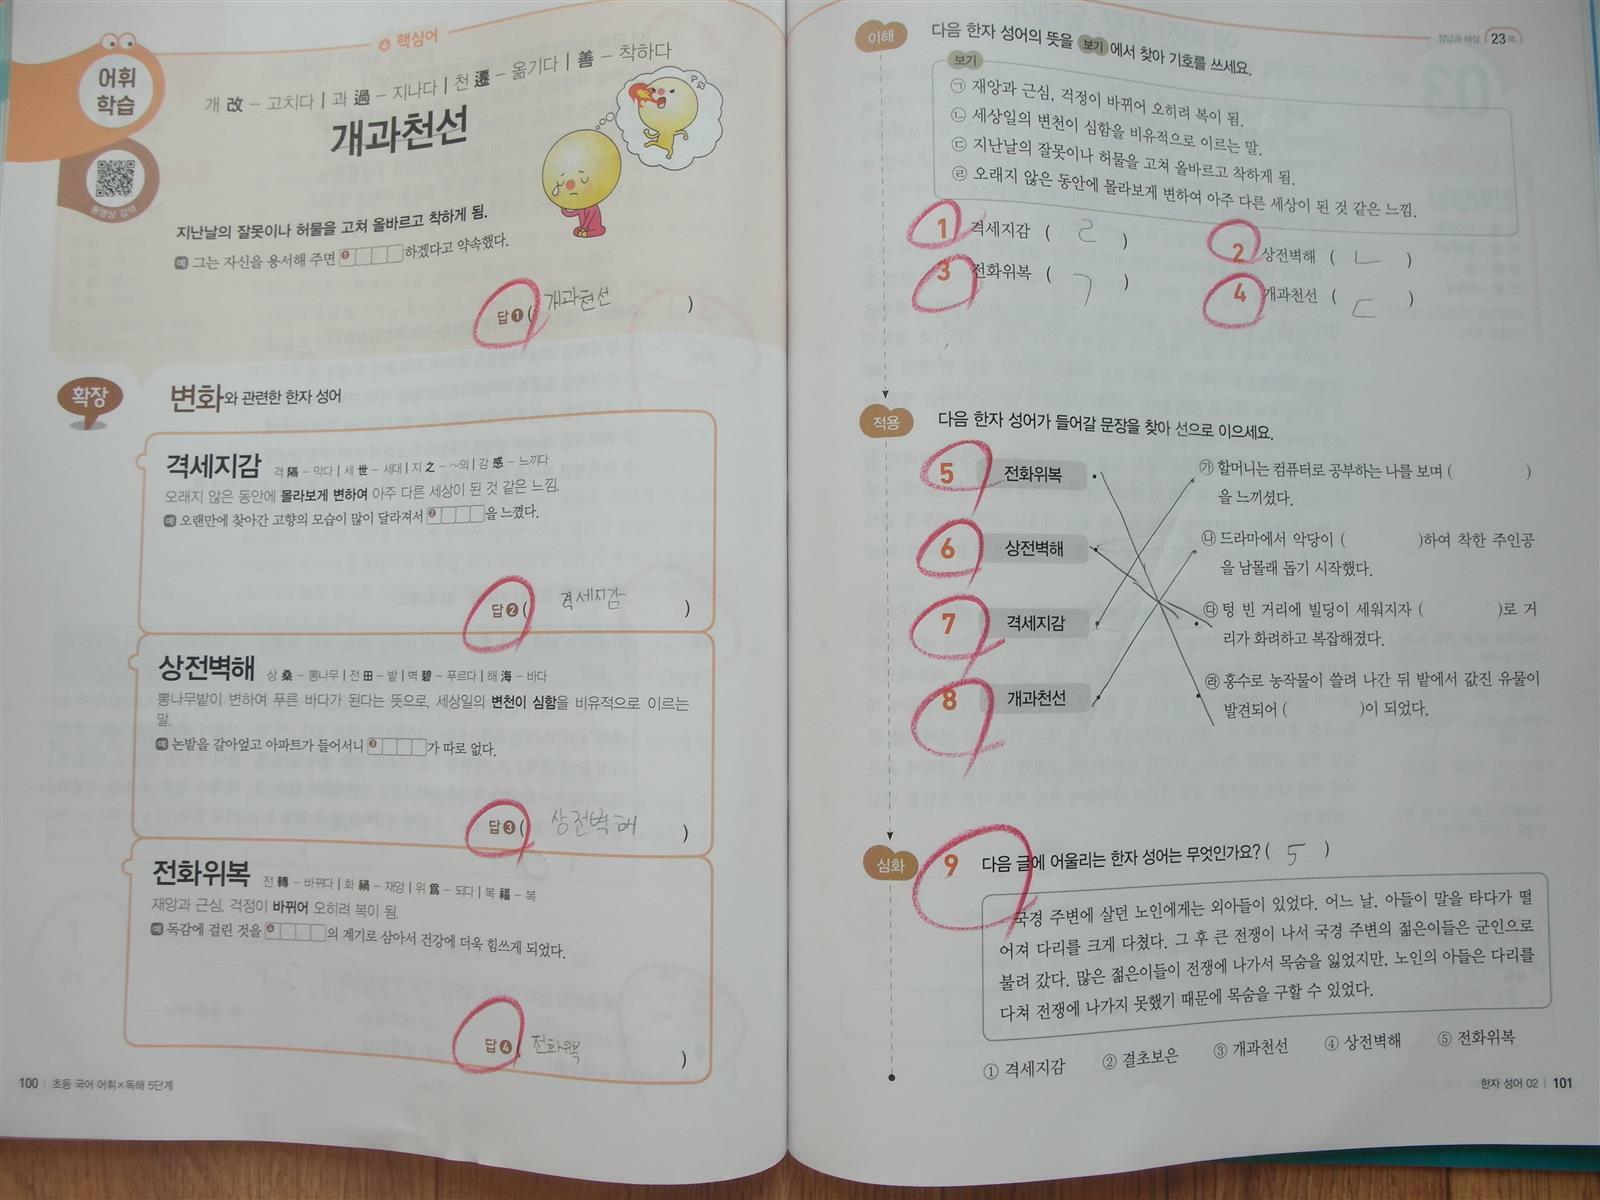 어휘
학습
동영상 강의
핵심어
개 改 – 고치다 | 과 過 – 지나다 | 천 遷 – 옮기다 | 善 – 착하다
개과천선
지난날의 잘못이나 허물을 고쳐 올바르고 착하게 됨.
예 그는 자신을 용서해 주면 ❶ 하겠다고 약속했다.
답 ❶ ( 개과천선 )
확장
변화와 관련한 한자 성어
격세지감 격 隔 – 막다 | 세 世 – 세대 | 지 之 – ~의 | 감 感 – 느끼다
오래지 않은 동안에 몰라보게 변하여 아주 다른 세상이 된 것 같은 느낌.
예 오랜만에 찾아간 고향의 모습이 많이 달라져서 ❷ 을 느꼈다.
답 ❷ ( 격세지감 )
상전벽해 상 桑 – 뽕나무 | 전 田 – 밭 | 벽 碧 – 푸르다 | 해 海 – 바다
뽕나무밭이 변하여 푸른 바다가 된다는 뜻으로, 세상일의 변천이 심함을 비유적으로 이르는
말.
예 논밭을 갈아엎고 아파트가 들어서니 ❸ 가 따로 없다.
답 ❸ ( 상전벽해 )
전화위복 전 轉 – 바뀌다 | 화 禍 – 재앙 | 위 爲 – 되다 | 복 福 – 복
재앙과 근심, 걱정이 바뀌어 오히려 복이 됨.
예 독감에 걸린 것을 ❹ 의 계기로 삼아서 건강에 더욱 힘쓰게 되었다.
답 ❹ ( 전화위복 )
100 | 초등 국어 어휘×독해 5단계
정답과 해설 23쪽
이해
다음 한자 성어의 뜻을 보기 에서 찾아 기호를 쓰세요.
보기
㉠ 재앙과 근심, 걱정이 바뀌어 오히려 복이 됨.
㉡ 세상일의 변천이 심함을 비유적으로 이르는 말.
㉢ 지난날의 잘못이나 허물을 고쳐 올바르고 착하게 됨.
㉣ 오래지 않은 동안에 몰라보게 변하여 아주 다른 세상이 된 것 같은 느낌.
1 격세지감 ( ㄹ ) 2 상전벽해 ( ㄴ )
3 전화위복 ( ㄱ ) 4 개과천선 ( ㄷ )
적용
다음 한자 성어가 들어갈 문장을 찾아 선으로 이으세요.
5 전화위복
6 상전벽해
7 격세지감
8 개과천선
㉮ 할머니는 컴퓨터로 공부하는 나를 보며 ( )
을 느끼셨다.
㉯ 드라마에서 악당이 ( )하여 착한 주인공
을 남몰래 돕기 시작했다.
㉰ 텅 빈 거리에 빌딩이 세워지자 ( )로 거
리가 화려하고 복잡해졌다.
㉱ 홍수로 농작물이 쓸려 나간 뒤 밭에서 값진 유물이
발견되어 ( )이 되었다.
심화
9 다음 글에 어울리는 한자 성어는 무엇인가요? ( 5 )
국경 주변에 살던 노인에게는 외아들이 있었다. 어느 날, 아들이 말을 타다가 떨
어져 다리를 크게 다쳤다. 그 후 큰 전쟁이 나서 국경 주변의 젊은이들은 군인으로
불려 갔다. 많은 젊은이들이 전쟁에 나가서 목숨을 잃었지만, 노인의 아들은 다리를
다쳐 전쟁에 나가지 못했기 때문에 목숨을 구할 수 있었다.
① 격세지감 ② 결초보은 ③ 개과천선 ④ 상전벽해 ⑤ 전화위복
한자 성어 02 | 101